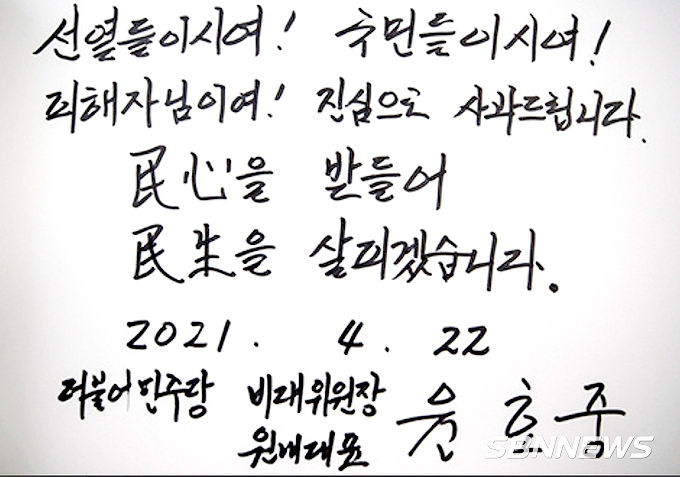 선열들이시여! 국민들이시여!
피해자님이여! 진심으로 사과드립니다.
民心을 받들어
民生을 살피겠습니다.
2021. 4. 22
더불어민주당 비대위원장 윤호중
원내대표
SBNNEWS